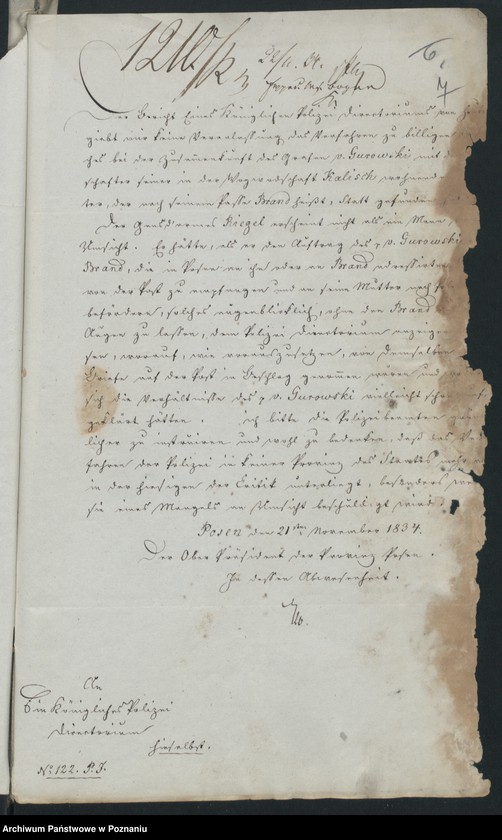 1210/12
22/11. 34.
6.
7
Der Bericht Eines Königlichen Polizei Directoriums vom
giebt mir keine Veranlassung, das Verfahren zu billigen,
ches bei der Zusammenkunft des Grafen v. Gurowski mit
schafter seiner in der Wojewodschaft Kalisch wohnend
ter, der nach seinem Passe Brand heißt, statt gefunden
Der Gensd'armes Riegel erscheint nicht als ein Mann
Umsicht. Er hätte, als er den Auftrag des p v. Gurowski
Brand, die in Posen an ihn oder an Brand adressirten
von der Post zu empfangen und an seine Mutter nach
befördern, solches augenblicklich, ohne den Brand
Augen zu lassen, dem Polizei Directorium anzeigen
sen, worauf, wie vorauszusetzen, von demselben
Briefe auf der Post in Beschlag genommen wären und
sich die Verhältnisse des p v. Gurowski vielleicht
geklärt hätten. Ich bitte die Polizeibeamten
licher zu instruiren und wohl zu bedenken, daß das
fahren der Polizei in keiner Provinz des Staates mehr
in der hiesigen der Critik unterliegt, besonders
sie eines Mangels an Umsicht beschuldigt wird.
Posen den 21ten November 1834.
Der Ober Präsident der Provinz Posen.
In dessen Abwesenheit.
An
Ein Königliches Polizei
Directorium
hieselbst.
No 122. P. J.
Archiwum Państwowe w Poznaniu